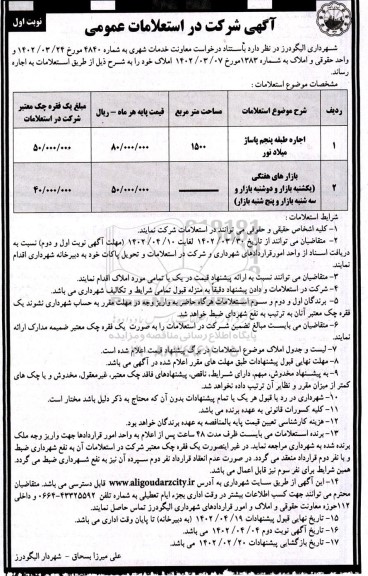 نوبت اول
آگهی شرکت در استعلامات عمومی
شهرداری الیگودرز در نظر دارد باستناد درخواست معاونت خدمات شهری به شماره ۴۸۴۰ مورخ ۱۴۰۲/۰۳/۲۴ و
واحد حقوقی و املاک به شماره ۱۳۸۳مورخ ۱۴۰۲/۰۳/۰۷ املاک خود را به شرح ذیل از طریق استعلامات به اجاره
رساند.
مشخصات موضوع استعلامات :
ردیف | شرح موضوع استعلامات | مساحت متر مربع | قیمت پایه هر ماه – ریال | مبلغ یک فقره چک معتبر شرکت در استعلامات
۱ | اجاره طبقه پنجم پاساژ میلاد نور | ۱۵۰۰ | ۸۰/۰۰۰/۰۰۰ | ۵۰/۰۰۰/۰۰۰
۲ | بازار های هفتگی (یکشنبه بازار و دوشنبه بازار و سه شنبه بازار و پنج شنبه بازار) | ——— | ۵۰/۰۰۰/۰۰۰ | ۴۰/۰۰۰/۰۰۰
شرایط استعلامات :
۱- کلیه اشخاص حقیقی و حقوقی می توانند در استعلامات شرکت نمایند.
۲- متقاضیان می توانند از تاریخ ۱۴۰۲/۰۳/۳۰ لغایت ۱۴۰۲/۰۴/۱۰ (مهلت آگهی نوبت اول و دوم) نسبت به
دریافت اسناد از واحد امورقراردادهای شهرداری و شرکت در استعلامات و تحویل پاکات خود به دبیرخانه شهرداری اقدام
نمایند.
۳- متقاضیان می توانند نسبت به ارائه پیشنهاد قیمت در یک یا تمامی موارد املاک اقدام نمایند.
۴- شرکت در استعلامات و دادن پیشنهاد دقیقا به منزله قبول تمامی شرایط و تکالیف شهرداری می باشد.
۵- برندگان اول و دوم و سوم استعلامات هرگاه حاضر به واریز وجه در مهلت مقرر به حساب شهرداری نشوند یک
فقره چک معتبر آنان به ترتیب به نفع شهردای ضبط خواهد شد.
۶- متقاضیان می بایست مبالغ تضمین شرکت در استعلامات را به صورت یک فقره چک معتبر ضمیمه مدارک ارائه
نمایند.
۷- لیست و جدول املاک موضوع استعلامات در برگ پیشنهاد قیمت اعلام شده است.
۸- مهلت نهایی قبول پیشنهادات طبق مهلت های مقرر اعلام شده در آگهی می باشد.
۹- به پیشنهاد مخدوش، مبهم، دارای شرایط، ناقص، پیشنهادهای فاقد چک معتبر، غیرمعقول، مخدوش و یا چک های
کمتر از میزان مقرر و نظایر آن ترتیب داده نخواهد شد.
۱۰- شهرداری در رد یا قبول هر یک یا تمام پیشنهادات بدون آن که محتاج به ذکر دلیل باشد مختار است.
۱۱- کلیه کسورات قانونی به عهده برنده می باشد.
۱۲- هزینه کارشناسی تعیین قیمت پایه بالمناصفه به عهده برندگان خواهد بود.
۱۳- برنده استعلامات می بایست ظرف مدت ۴۸ ساعت پس از اعلام به واحد امور قراردادها جهت واریز وجه ملک
برنده شده به شهرداری مراجعه نماید. در غیر اینصورت یک فقره چک معتبر شرکت در استعلامات آن به نفع شهرداری ضبط
و با نفر دوم قرارداد منعقد می گردد. در صورت عدم انعقاد قرارداد نفر دوم سپرده آن نیز به نفع شهرداری ضبط می گردد.
همین شرایط برای نفر سوم نیز قابل اعمال می باشد.
۱۴- این آگهی از طریق سایت شهرداری به آدرس www.aligoudarzcity.ir قابل دسترسی می باشد. متقاضیان
محترم می توانند جهت کسب اطلاعات بیشتر در وقت اداری بجزء ایام تعطیلی به شماره تلفن ۴۳۳۲۵۵۹۲-۰۶۶ و داخلی
۱۱۲حوزه معاونت حقوقی و املاک و امور قراردادهای شهرداری الیگودرز تماس حاصل نمایند.
۱۵- تاریخ نهایی قبول پیشنهادات ۱۴۰۲/۰۴/۱۹ (به دبیرخانه) تا پایان وقت اداری می باشد.
۱۶- تاریخ آگهی نوبت دوم ۱۴۰۲/۰۴/۰۴ می باشد.
۱۷- تاریخ بازگشایی پیشنهادات ۱۴۰۲/۰۴/۲۰ می باشد.
علی میرزا بسحاق - شهردار الیگودرز